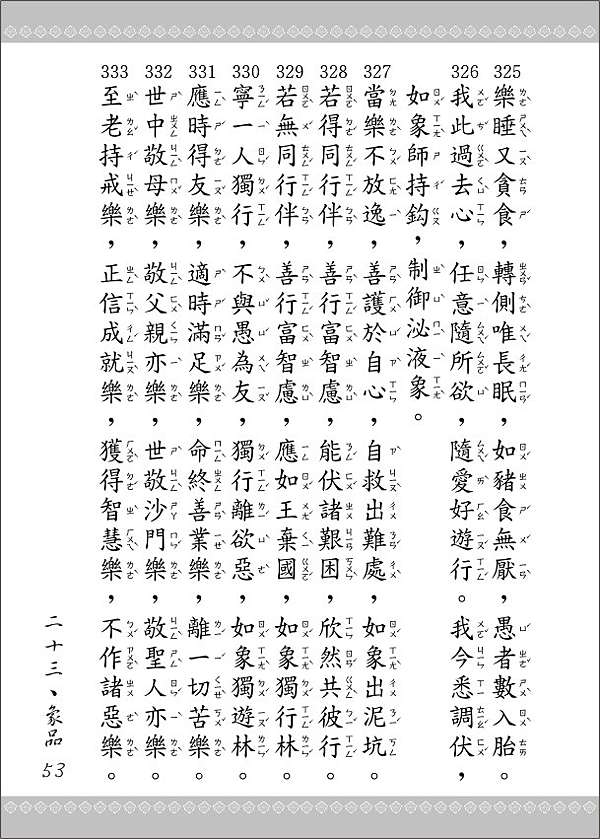 325 樂睡又貪食，轉側唯長眠，如豬食無厭，愚者數入胎。
326 我此過去心，任意隨所欲，隨愛好遊行。我今悉調伏，
如象師持鈎，制御泌液象。
327 當樂不放逸，善護於自心，自救出難處，如象出泥坑。
328 若得同行伴，善行富智慮，能伏諸艱困，欣然共彼行。
329 若無同行伴，善行富智慮，應如王棄國，如象獨行林。
330 寧一人獨行，不與愚為友，獨行離欲惡，如象獨遊林。
331 應時得友樂，適時滿足樂，命終善業樂，離一切苦樂。
332 世中敬母樂，敬父親亦樂，世敬沙門樂，敬聖人亦樂。
333 至老持戒樂，正信成就樂，獲得智慧樂，不作諸惡樂。
二十三、象品
53